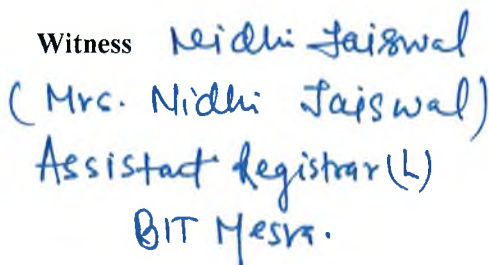 Witness Nidhi Jaiswal
(Mrs. Nidhi Jaiswal)
Assistact Registrar (L)
BIT Mesra.